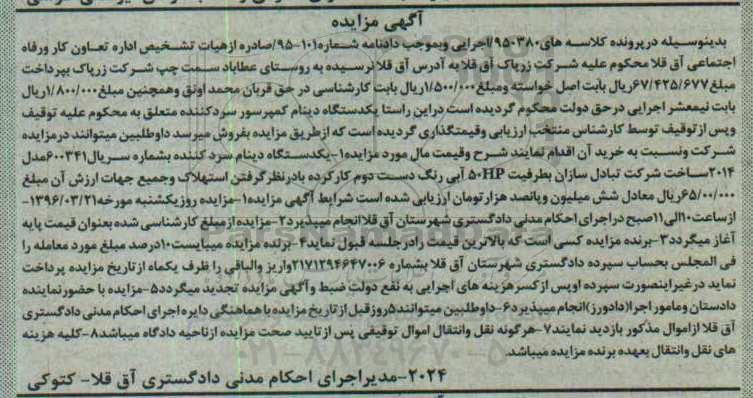 آگهی مزایده
بدینوسیله در پرونده کلاسه های ۹۵۰۳۸۰/اجرایی وبموجب دادنامه شماره ۱۰۱-۹۵/صادره ازهیات تشخیص اداره تعاون کار ورفاه
اجتماعی آق قلا محکوم علیه شرکت زرپاک آق قلا به آدرس آق قلا نرسیده به روستای عطاباد سمت چپ شرکت زرپاک بپرداخت
مبلغ ۶۷/۴۲۵/۶۷۷ریال بابت اصل خواسته ومبلغ ۱/۵۰۰/۰۰۰ریال بابت کارشناسی در حق قربان محمد اونق وهمچنین مبلغ ۱/۸۰۰/۰۰۰ریال
بابت نیمعشر اجرایی درحق دولت محکوم گردیده است دراین راستا یکدستگاه دینام کمپرسور سردکننده متعلق به محکوم علیه توقیف
وپس ازتوقیف توسط کارشناس منتخب ارزیابی وقیمتگذاری گردیده است که ازطریق مزایده بفروش میرسد داوطلبین میتوانند درمزایده
شرکت ونسبت به خرید آن اقدام نمایند شرح وقیمت مال مورد مزایده۱-یکدستگاه دینام سرد کننده بشماره سریال۶۰۰۳۴۱مدل
۲۰۱۴ساخت شرکت تبادل سازان بظرفیت ۵۰HP آبی رنگ دست دوم کارکرده بادرنظرگرفتن استهلاک وجمیع جهات ارزش آن مبلغ
۶۵/۰۰/۰۰۰ریال معادل شش میلیون وپانصد هزارتومان ارزیابی شده است شرایط آگهی مزایده۱-مزایده روزیکشنبه مورخه۱۳۹۶/۰۳/۲۱-
ازساعت۱۰الی۱۱صبح دراجرای احکام مدنی دادگستری شهرستان آق قلا انجام میپذیرد۲-مزایده ازمبلغ کارشناسی شده بعنوان قیمت پایه
آغاز میگردد۳-برنده مزایده کسی است که بالاترین قیمت رادرجلسه قبول نماید۴-برنده مزایده میبایست۱۰درصد مبلغ مورد معامله را
فی المجلس بحساب سپرده دادگستری شهرستان آق قلا بشماره ۲۱۷۱۲۹۴۶۴۷۰۰۶واریز والباقی را ظرف یکماه ازتاریخ مزایده پرداخت
نماید درغیراینصورت سپرده اوپس ازکسرهزینه های اجرایی به نفع دولت ضبط وآگهی مزایده تجدید میگردد۵-مزایده با حضورنماینده
دادستان ومامور اجرا(دادورز)انجام میپذیرد۶-داوطلبین میتوانند۵روزقبل ازتاریخ مزایده باهماهنگی دایره اجرای احکام مدنی دادگستری
آق قلا ازاموال مذکور بازدید نمایند۷-هرگونه نقل وانتقال اموال توقیفی پس ازتایید صحت مزایده ازناحیه دادگاه میباشد۸-کلیه هزینه
های نقل وانتقال بعهده برنده مزایده میباشد.
۲۰۲۴-مدیراجرای احکام مدنی دادگستری آق قلا- کتوکی